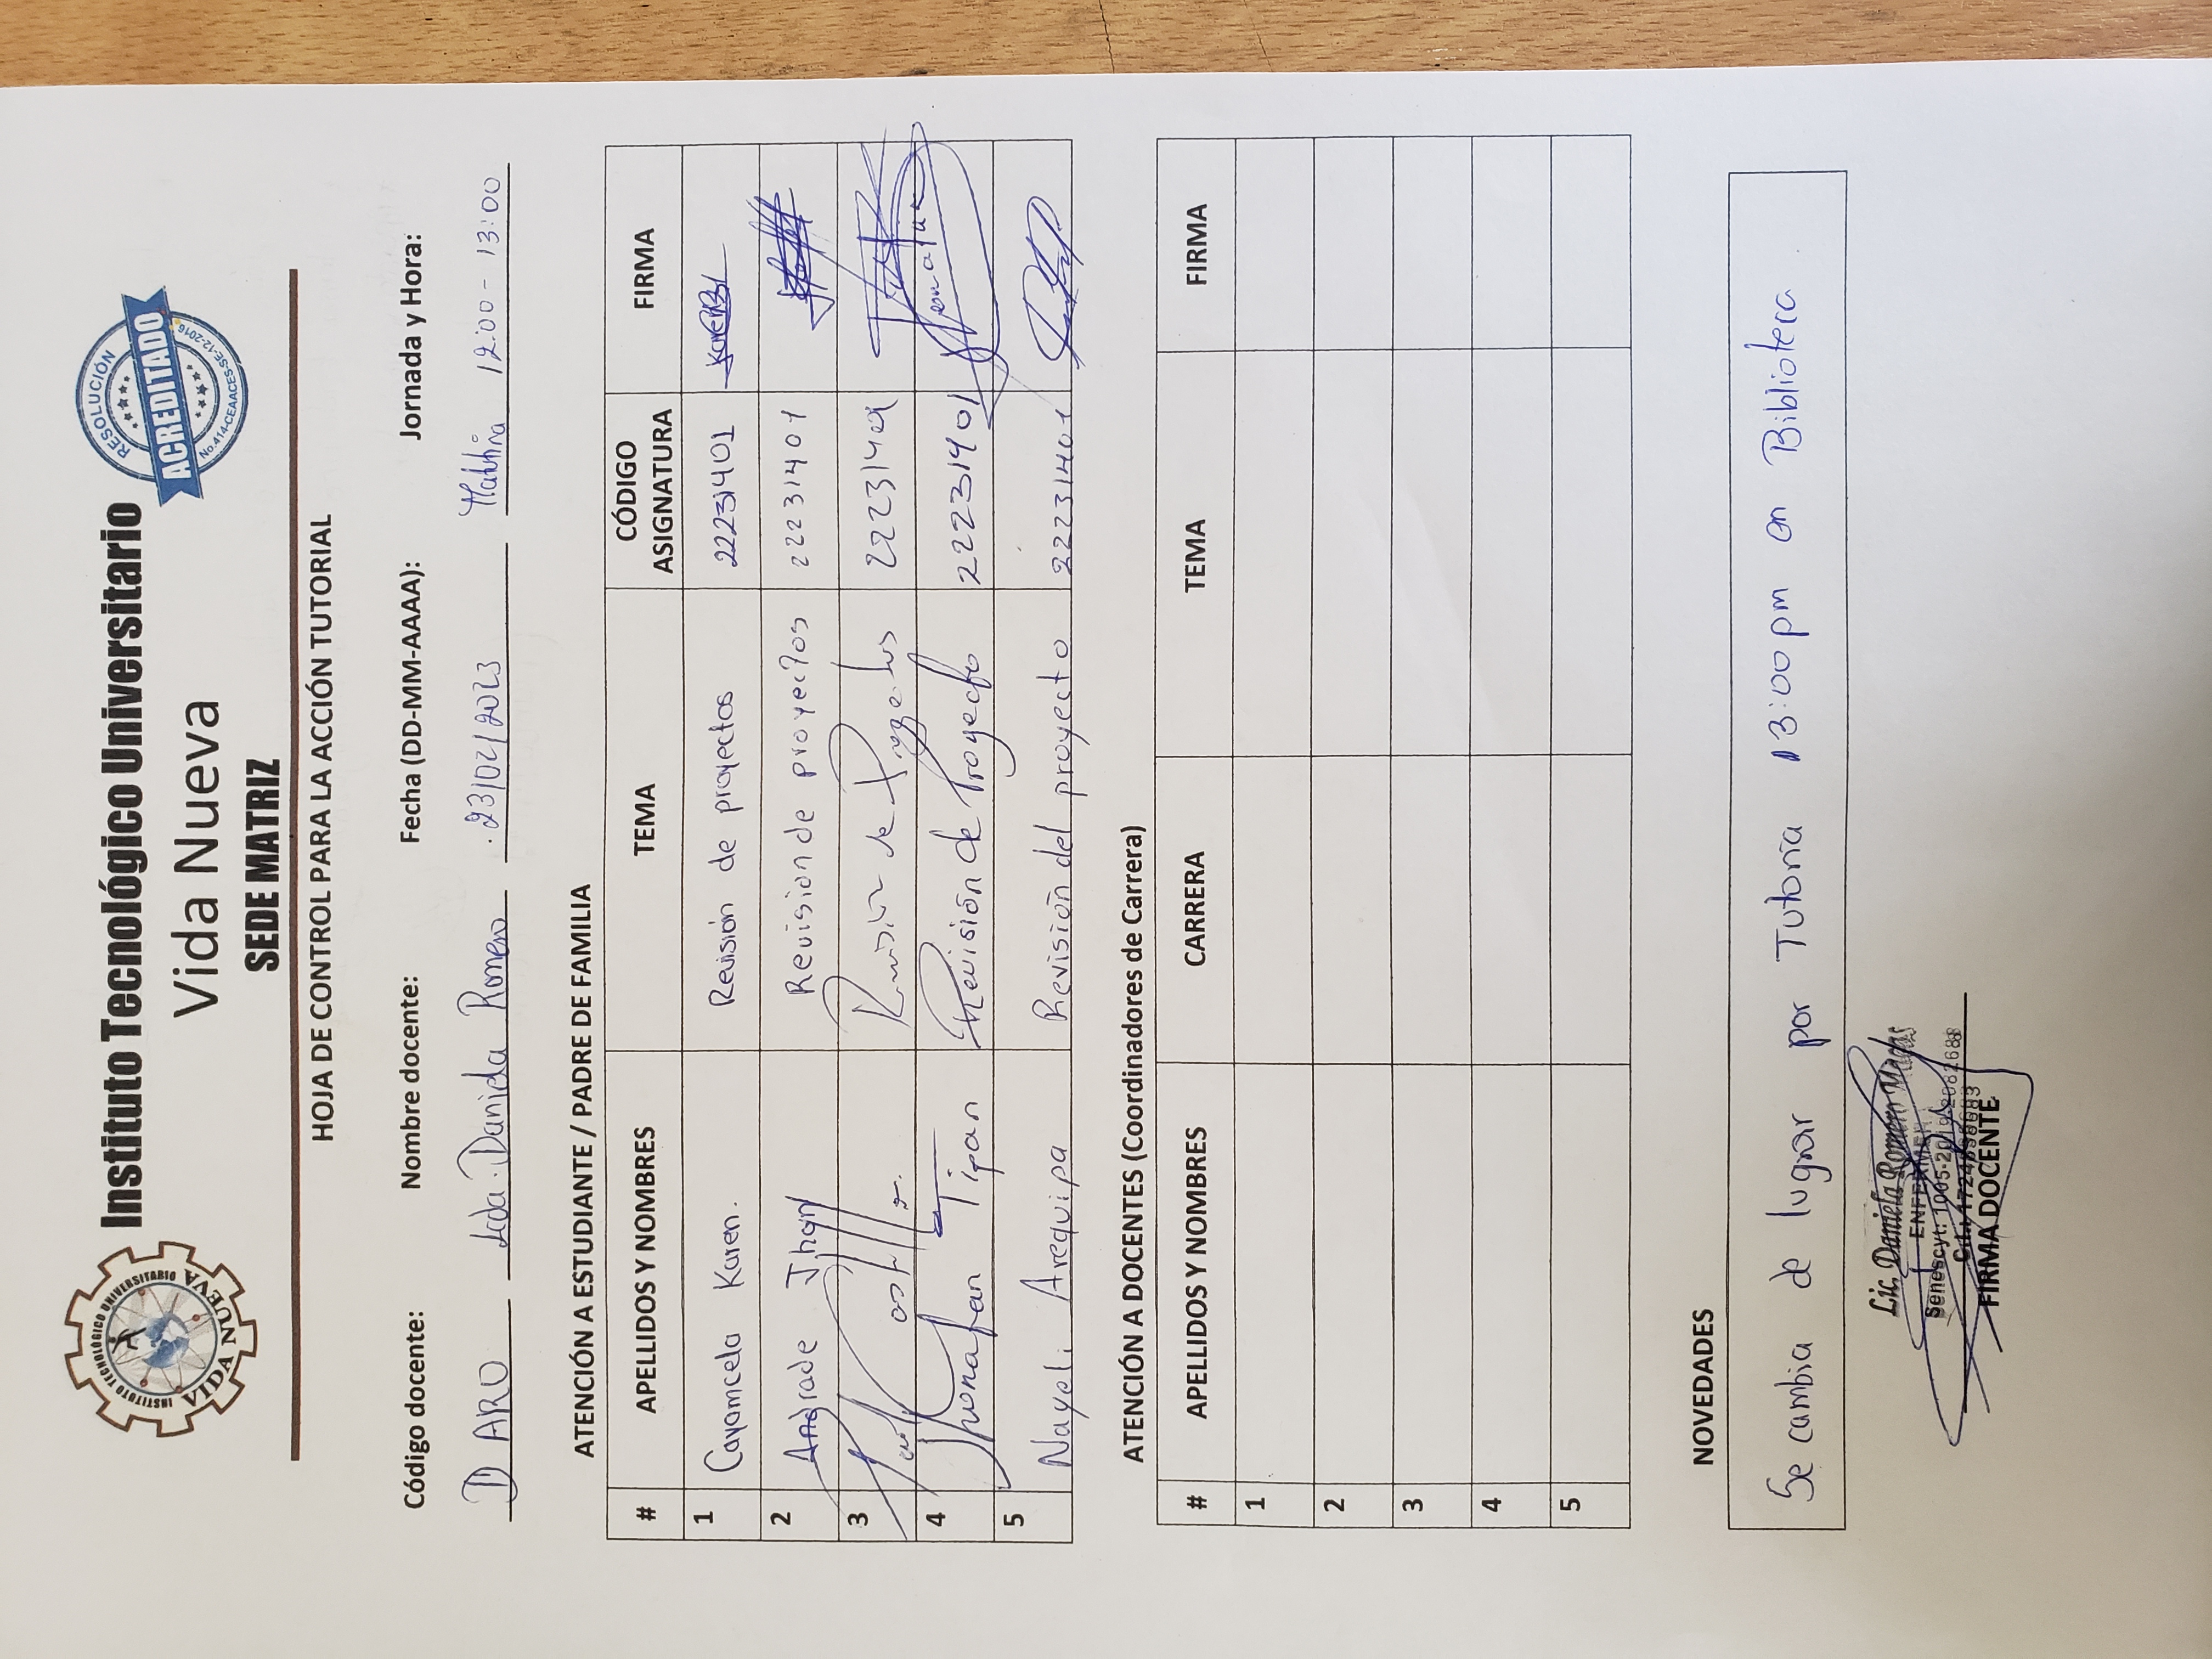 INSTITUTO TECNOLÓGICO UNIVERSITARIO
VIDA NUEVA
Instituto Tecnológico Universitario
Vida Nueva
SEDE MATRIZ
RESOLUCIÓN
ACREDITADO
No.414-CEAACES-SE-12-2016
HOJA DE CONTROL PARA LA ACCIÓN TUTORIAL
Código docente: Nombre docente: Fecha (DD-MM-AAAA): Jornada y Hora:
D ARO Lcda. Daniela Romero 23/02/2023 Matutina 12:00 - 13:00
ATENCIÓN A ESTUDIANTE / PADRE DE FAMILIA
# APELLIDOS Y NOMBRES TEMA CÓDIGO ASIGNATURA FIRMA
1 Cayamcela Karen. Revisión de proyectos 22231401
2 Andrade Jhon Revision de proyectos 22231401
3 Castillo Revisión de Proyectos 22231401
4 Jhonatan Tipan Revisión de Proyecto 22231401
5 Nayeli Arequipa Revisión del proyecto 22231401
ATENCIÓN A DOCENTES (Coordinadores de Carrera)
# APELLIDOS Y NOMBRES CARRERA TEMA FIRMA
1
2
3
4
5
NOVEDADES
Se cambia de lugar por Tutoria 13:00 pm en Biblioteca
Lic. Daniela Romero Macas
ENFERMERA
Senescyt: 1005-2019-2082688
C.I.:
FIRMA DOCENTE